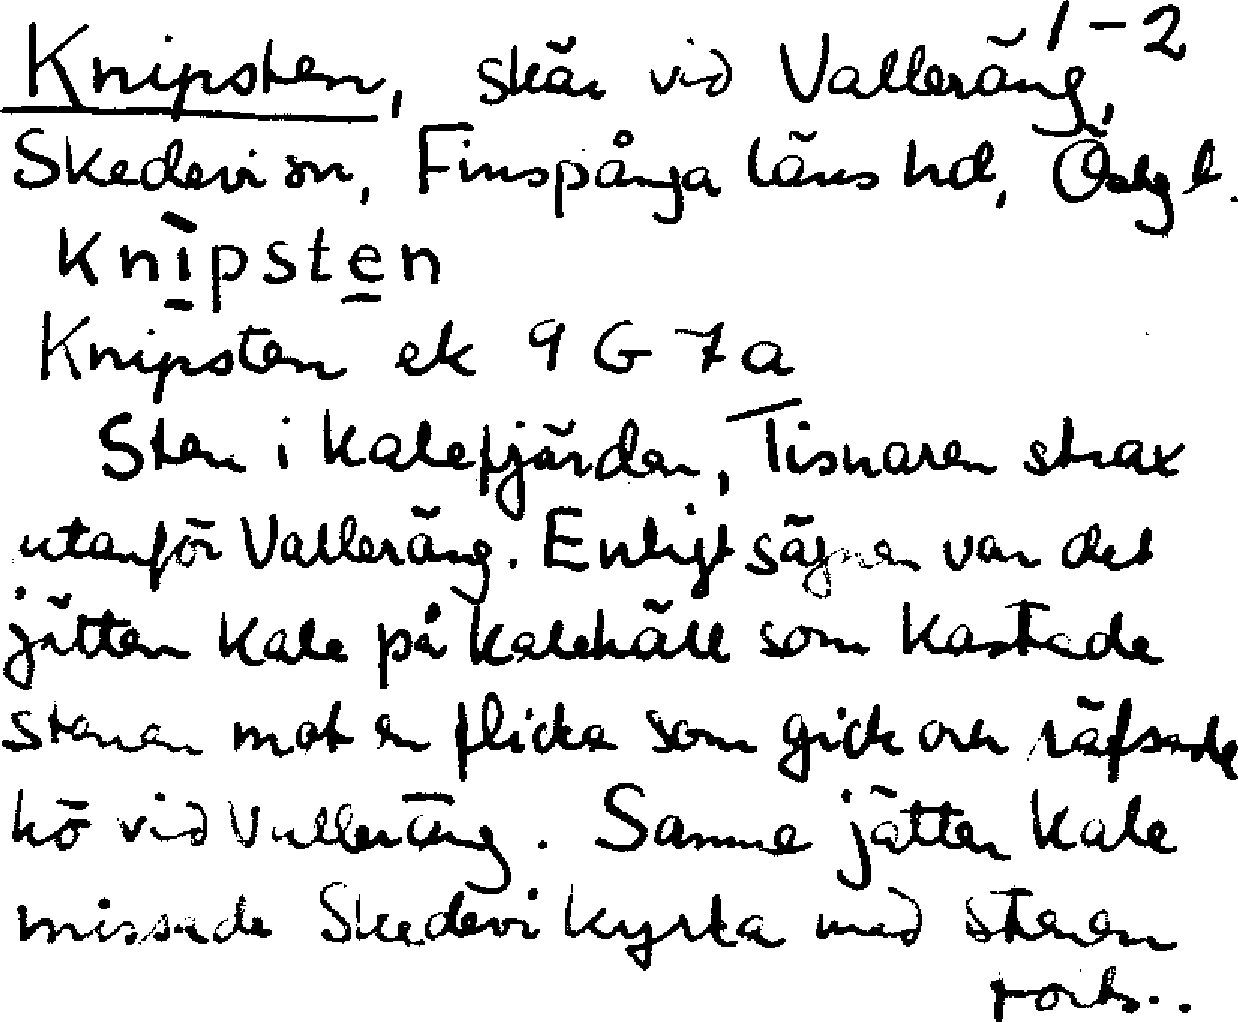 1-2
Knipsten, skär vid Valleräng,
Skedevi sn, Finspånga läns hd, Östg l.
knìpsten
Knipsten ek 9G7a
Sten i Kalefjärden, Tisnaren strax
utanför Valleräng. Enligt sägnen var det
jätten Kale på Kalehäll som kastade
stenen mot en flicka som gick och räfsade
hö vid Valleräng. Samme jätten Kale
missade Skedevi kyrka med stenen
forts..